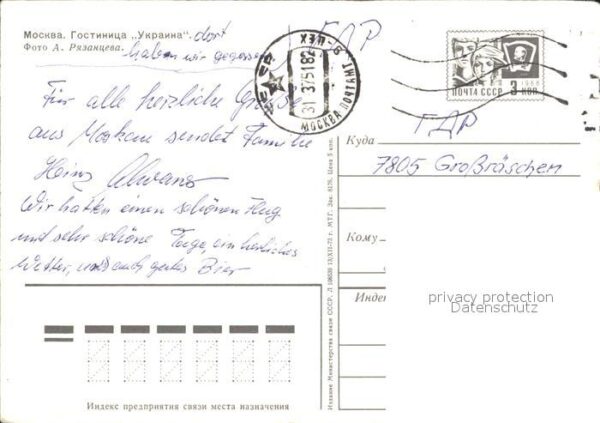 Москва. Гостиница „Украина“. dort
Фото А. Рязанцева. haben wir gegessen
ГДР
МОСКВА ПОЧТАМТ
31 3 75 18
ЦЕХ
ПОЧТА СССР 3 коп.
1966
Für alle herzliche Grüße
aus Moskau sendet Familie
Heinz
Wir hatten einen schönen Flug
und sehr schöne Tage, ein herrliches
Wetter, und auch gutes Bier
ГДР
Куда
7805 Großräschen
Кому
Индекс
privacy protection
Datenschutz
Издание Министерства связи СССР. Л 106539 13/XII-73 г. МТГ. Зак. 8176. Цена 5 коп.
Индекс предприятия связи места назначения